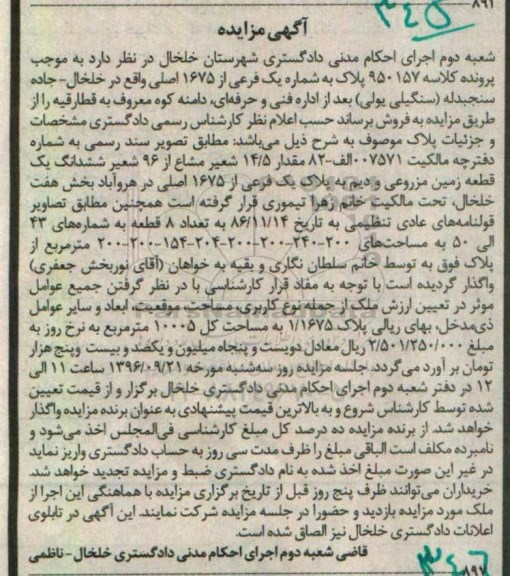 ۸۹۱
۳۴۵
آگهی مزایده
شعبه دوم اجرای احکام مدنی دادگستری شهرستان خلخال در نظر دارد به موجب
پرونده کلاسه ۹۵۰۱۵۷ پلاک به شماره یک فرعی از ۱۶۷۵ اصلی واقع در خلخال-جاده
سنجبدله (سنگیلی یولی) بعد از اداره فنی و حرفه‌ای، دامنه کوه معروف به قطارقیه را از
طریق مزایده به فروش برساند حسب اعلام نظر کارشناس رسمی دادگستری مشخصات
و جزئیات پلاک موصوف به شرح ذیل می‌باشد: مطابق تصویر سند رسمی به شماره
دفترچه مالکیت ۰۰۷۵۷۱الف-۸۲ مقدار ۱۴/۵ شعیر مشاع از ۹۶ شعیر ششدانگ یک
قطعه زمین مزروعی و دیم به پلاک یک فرعی از ۱۶۷۵ اصلی در هروآباد بخش هفت
خلخال، تحت مالکیت خانم زهرا تیموری قرار گرفته است همچنین مطابق تصاویر
قولنامه‌های عادی تنظیمی به تاریخ ۸۶/۱۱/۱۴ به تعداد ۸ قطعه به شماره‌های ۴۳
الی ۵۰ به مساحت‌های ۲۰۰-۲۴۰-۲۰۰-۲۰۰-۲۰۴-۱۵۴-۲۰۰-۲۰۰ مترمربع از
پلاک فوق به توسط خانم سلطان نگاری و بقیه به خواهان (آقای نوربخش جعفری)
واگذار گردیده است با توجه به مفاد قرار کارشناسی با در نظر گرفتن جمیع عوامل
موثر در تعیین ارزش ملک از جمله نوع کاربری، مساحت، موقعیت، ابعاد و سایر عوامل
ذی‌مدخل، بهای ریالی پلاک ۱/۱۶۷۵ به مساحت کل ۱۰۰۰۵ مترمربع به نرخ روز به
مبلغ ۲/۵۰۱/۲۵۰/۰۰۰ ریال معادل دویست و پنجاه میلیون و یکصد و بیست و پنج هزار
تومان بر آورد می‌گردد. جلسه مزایده روز سه‌شنبه مورخه ۱۳۹۶/۰۹/۲۱ ساعت ۱۱ الی
۱۲ در دفتر شعبه دوم اجرای احکام مدنی دادگستری خلخال برگزار و از قیمت تعیین
شده توسط کارشناس شروع و به بالاترین قیمت پیشنهادی به عنوان برنده مزایده واگذار
خواهد شد. از برنده مزایده ده درصد کل مبلغ کارشناسی فی‌المجلس اخذ می‌شود و
نامبرده مکلف است الباقی مبلغ را ظرف مدت سی روز به حساب دادگستری واریز نماید
در غیر این صورت مبلغ اخذ شده به نام دادگستری ضبط و مزایده تجدید خواهد شد.
خریداران می‌توانند ظرف پنج روز قبل از تاریخ برگزاری مزایده با هماهنگی این اجرا از
ملک مورد مزایده بازدید و حضورا در جلسه مزایده شرکت نمایند. این آگهی در تابلوی
اعلانات دادگستری خلخال نیز الصاق شده است.
قاضی شعبه دوم اجرای احکام مدنی دادگستری خلخال-ناظمی
۳۴۶
۸۹۷